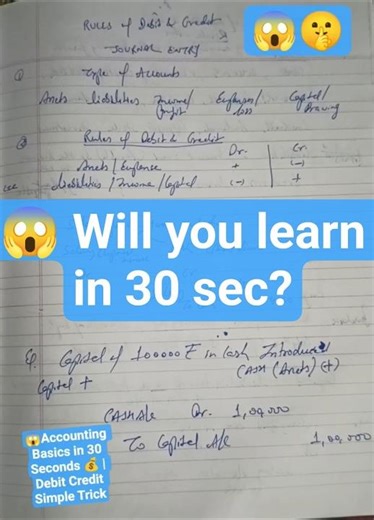 Rules of Debit & Credit
JOURNAL ENTRY
① Type of Accounts
Assets Liabilities Income/ Expenses/ Capital/
profit loss Drawing
② Rules of Debit & Credit
Dr. Cr.
Assets/Expense + (-)
Liabilities/Income/Capital (-) +
😱 Will you learn
in 30 sec?
Eg. Capital of 100000 ₹ in Cash Introduced
Capital + CASH (Assets) (+)
CASH A/c Dr. 1,00,000
To Capital A/c 1,00,000
😱Accounting
Basics in 30
Seconds 💰 |
Debit Credit
Simple Trick